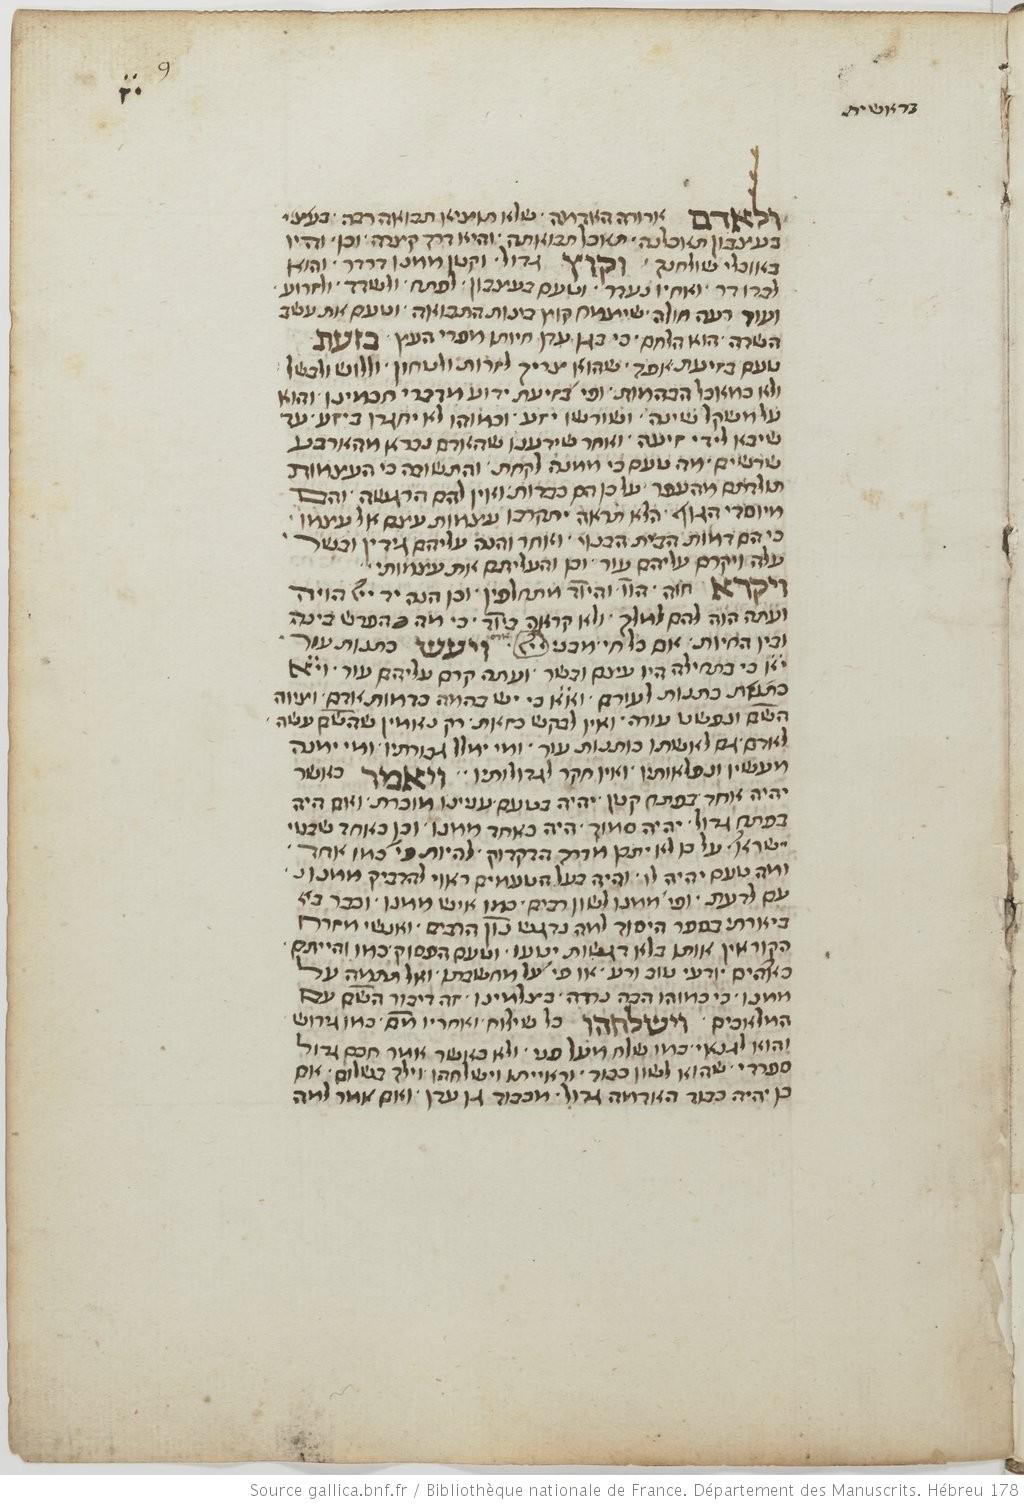 9
בראשית
ולאדם ארורה האדמה שלא תוציא תבואה רבה
בעצבון תאכלנה תאכל תבואתה והיא דרך קצרה וכן והיו
באוכלי שולחנך וקוץ גדול וקטן ממנו דרדר והוא
לבדו דר ואחיו נעדר וטעם בעצבון לפתח ולשדד ולזרוע
ועוד רעה חולה שיצמח קוץ בינות התבואה וטעם את עשב
השדה הוא הלחם כי בגן עדן חיותו מפרי העץ בזעת
טעם בזיעת אפך שהוא צריך לזרות ולטחון וללוש ולבשל
ולא כמאכל הבהמות ופי׳ בזיעת ידוע מדברי חכמינו והוא
על משקל שינה ושורשו יזע וכמוהו לא יחגרו ביזע עד
שיבא לידי זיעה ואחר שידענו שהאדם נברא מהארבע
שרשים מה טעם כי ממנה לקחת והתשובה כי העצמות
תולדתם מהעפר על כן הם כבדות ואין להם הרגשה והם
מיוסדי הגוף הלא תראה יתקרבו עצמות עצם אל עצמו
כי הם דמות הבית הבנוי ואחר והנה עליהם גידין ובשר
עלה ויקרם עליהם עור וכן והעליתם את עצמותי
ויקרא חוה הוו והיוד מתחלפין וכן הנה יד ייי הויה
ועתה הוה להם למלך ולא קראה ביוד כי מה הפרש בינה
ובין החיות אם כל חי מבני אדם ויעש כתנות עור
י״א כי בתחילה היו עצם ובשר ועתה קרם עליהם עור וי״א
כתנות לעורם וא״א כי יש בהמה בדמות אדם וצוה
השם ונפשט עורה ואין לבקש כזאת רק נאמין שהשם עשה
לאדם גם לאשתו כותנות עור ומי ימלל גבורתיו ומי ימנה
מעשיו ונפלאותיו ואין חקר לגדולותיו ויאמר כאשר
יהיה אחד בפתח קטן יהיה בטעם ענינו מוכרת ואם היה
בפתח גדול יהיה סמוך היה כאחד ממנו וכן כאחד שבטי
ישראל על כן לא יתכן מדרך הדקדוק להיות פי׳ כמו אחד
ומה טעם יהיה לו והיה בעל הטעמים ראוי להדביק ממנו
עם לדעת ופי׳ ממנו לשון רבים כמו איש ממנו וכבר
ביארתי בספר היסוד למה נדגש נון הרבים ואנשי מזרח
הקוראין אותו בלא דגשות יטעו וטעם הפסוק כמו והייתם
כאלהים יודעי טוב ורע או פי׳ על מחשבתו ואל תתמה על
ממנו כי כמוהו הבה נרדה בצלמינו זה דיבור השם עם
המלאכים וישלחהו כל שילוח ואחריו מם כמו גירוש
והוא לגנאי כמו שלח מעל פני ולא כאשר אמר חכם גדול
ספרדי שהוא לשון כבוד וראייתו וישלחהו וילך בשלום אם
כן יהיה כבוד האדמה גדול מכבוד גן עדן ואם אמר למה
Source gallica.bnf.fr / Bibliothèque nationale de France. Département des Manuscrits. Hébreu 178